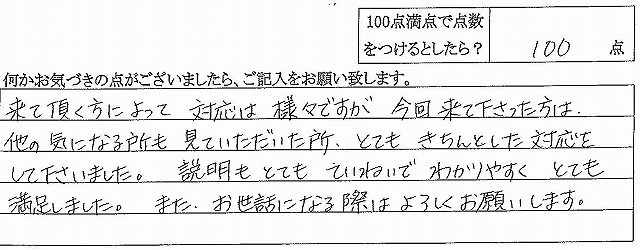 100点満点で点数
をつけるとしたら？ 100 点
何かお気づきの点がございましたら、ご記入をお願い致します。
来て頂く方によって 対応は 様々ですが 今回 来て下さった方は、
他の 気になる所も 見ていただいた所、とても きちんとした 対応を
して下さいました。 説明も とても ていねいで わかりやすく とても
満足しました。 また、お世話になる際は よろしくお願いします。